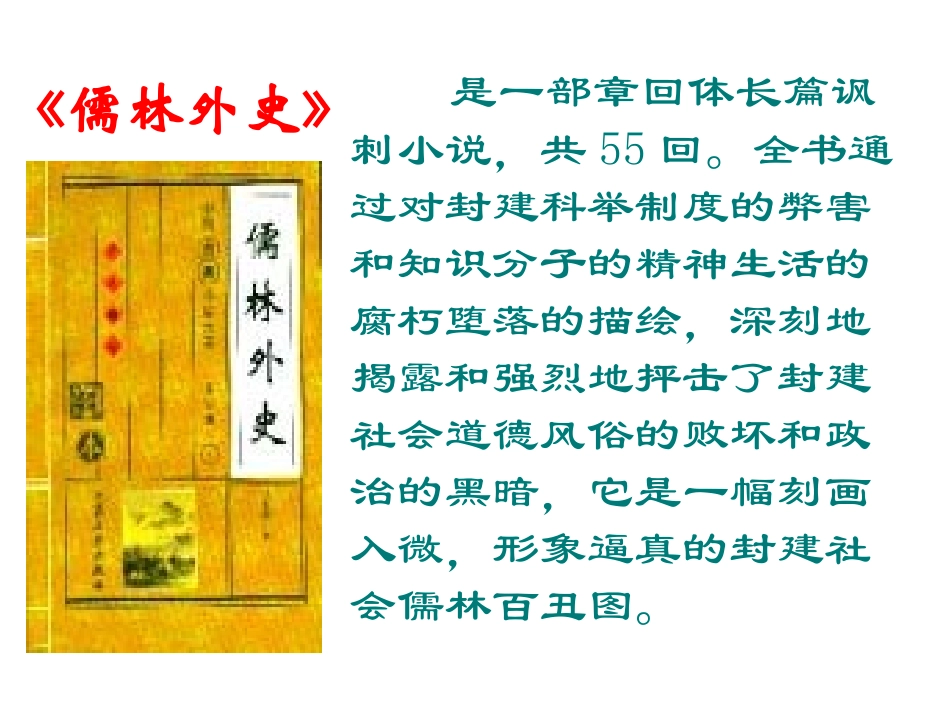 《儒林外史》
是一部章回体长篇讽
刺小说，共 55 回。全书通
过对封建科举制度的弊害
和知识分子的精神生活的
腐朽堕落的描绘，深刻地
揭露和强烈地抨击了封建
社会道德风俗的败坏和政
治的黑暗，它是一幅刻画
入微，形象逼真的封建社
会儒林百丑图。
儒林外史